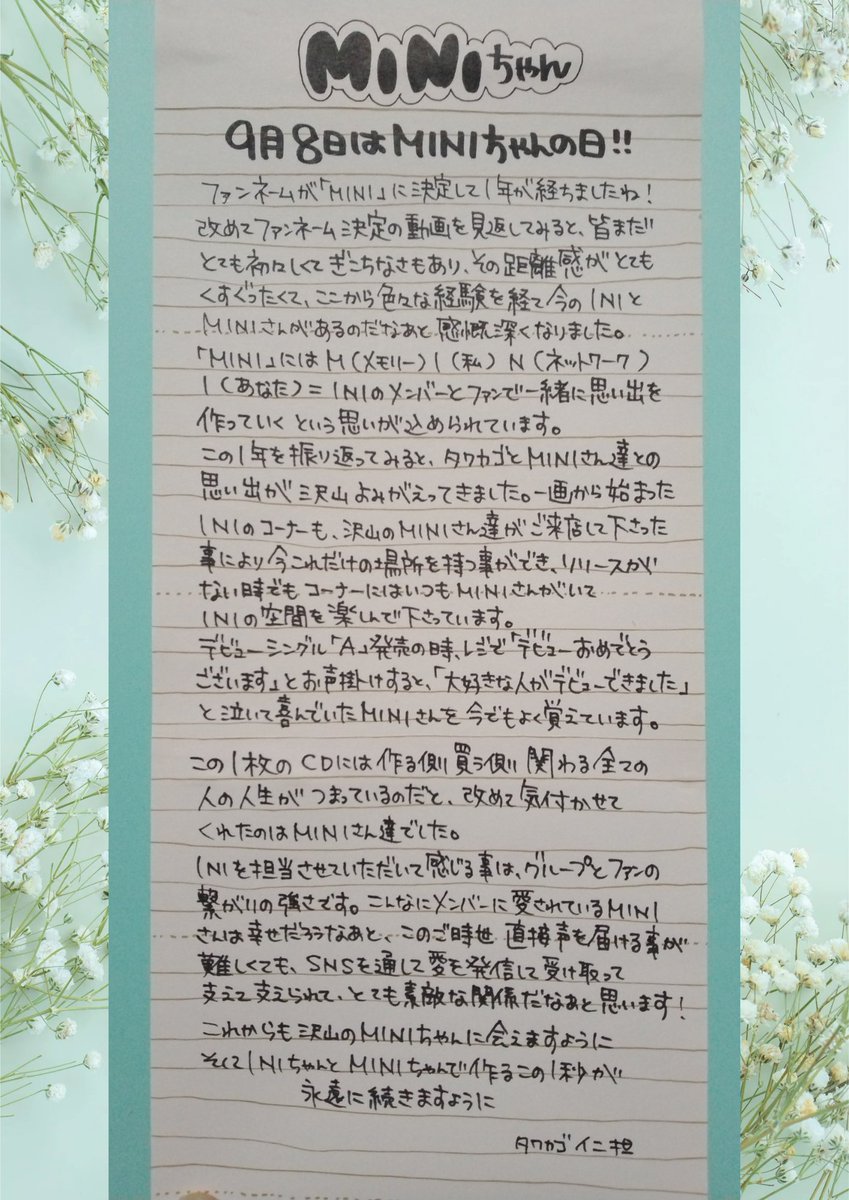 MINIちゃん
9月8日はMINIちゃんの日!!
ファンネームが「MINI」に決定して1年が経ちましたね!
改めてファンネーム決定の動画を見返してみると、皆まだ
とても初々しくてぎこちなさもあり、その距離感がとても
くすぐったくて、ここから色々な経験を経て今のINIと
MINIさんがあるのだなあと感慨深くなりました。
「MINI」にはM(メモリー)I(私)N(ネットワーク)
I(あなた)=INIのメンバーとファンで一緒に思い出を
作っていくという思いが込められています。
この1年を振り返ってみると、タワカゴとMINIさん達との
思い出が沢山よみがえってきました。一画から始まった
INIのコーナーも、沢山のMINIさん達がご来店して下さった
事により今これだけの場所を持つ事ができ、リリースが
ない時でもコーナーにはいつもMINIさんがいて
INIの空間を楽しんで下さっています。
デビューシングル「A」発売の時、レジで「デビューおめでとう
ございます」とお声掛けすると、「大好きな人がデビューできました」
と泣いて喜んでいたMINIさんを今でもよく覚えています。
この1枚のCDには作る側買う側関わる全ての
人の人生がつまっているのだと、改めて気付かせて
くれたのはMINIさん達でした。
INIを担当させていただいて感じる事は、グループとファンの
繋がりの強さです。こんなにメンバーに愛されているMINI
さんは幸せだろうなあと、このご時世直接声を届ける事が
難しくても、SNSを通して愛を発信して受け取って
支えて支えられて、とても素敵な関係だなあと思います!
これからも沢山のMINIちゃんに会えますように
そしてINIちゃんとMINIちゃんで作るこの1秒が
永遠に続きますように
タワカゴ イニ担